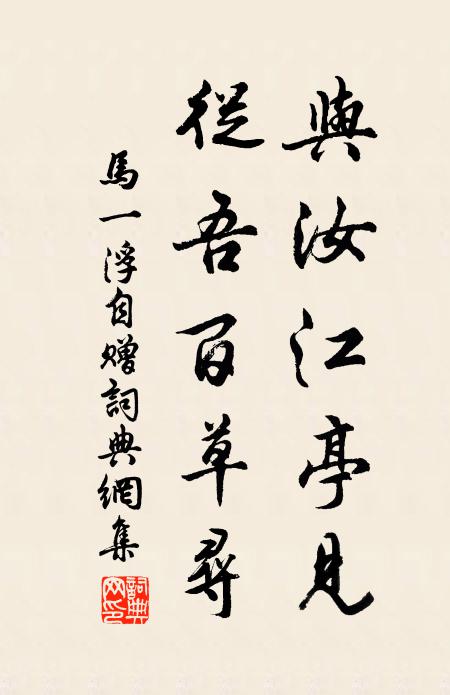 與汝江亭見
從吾百草尋
馬一浮自贈詞典網集
詞典網印